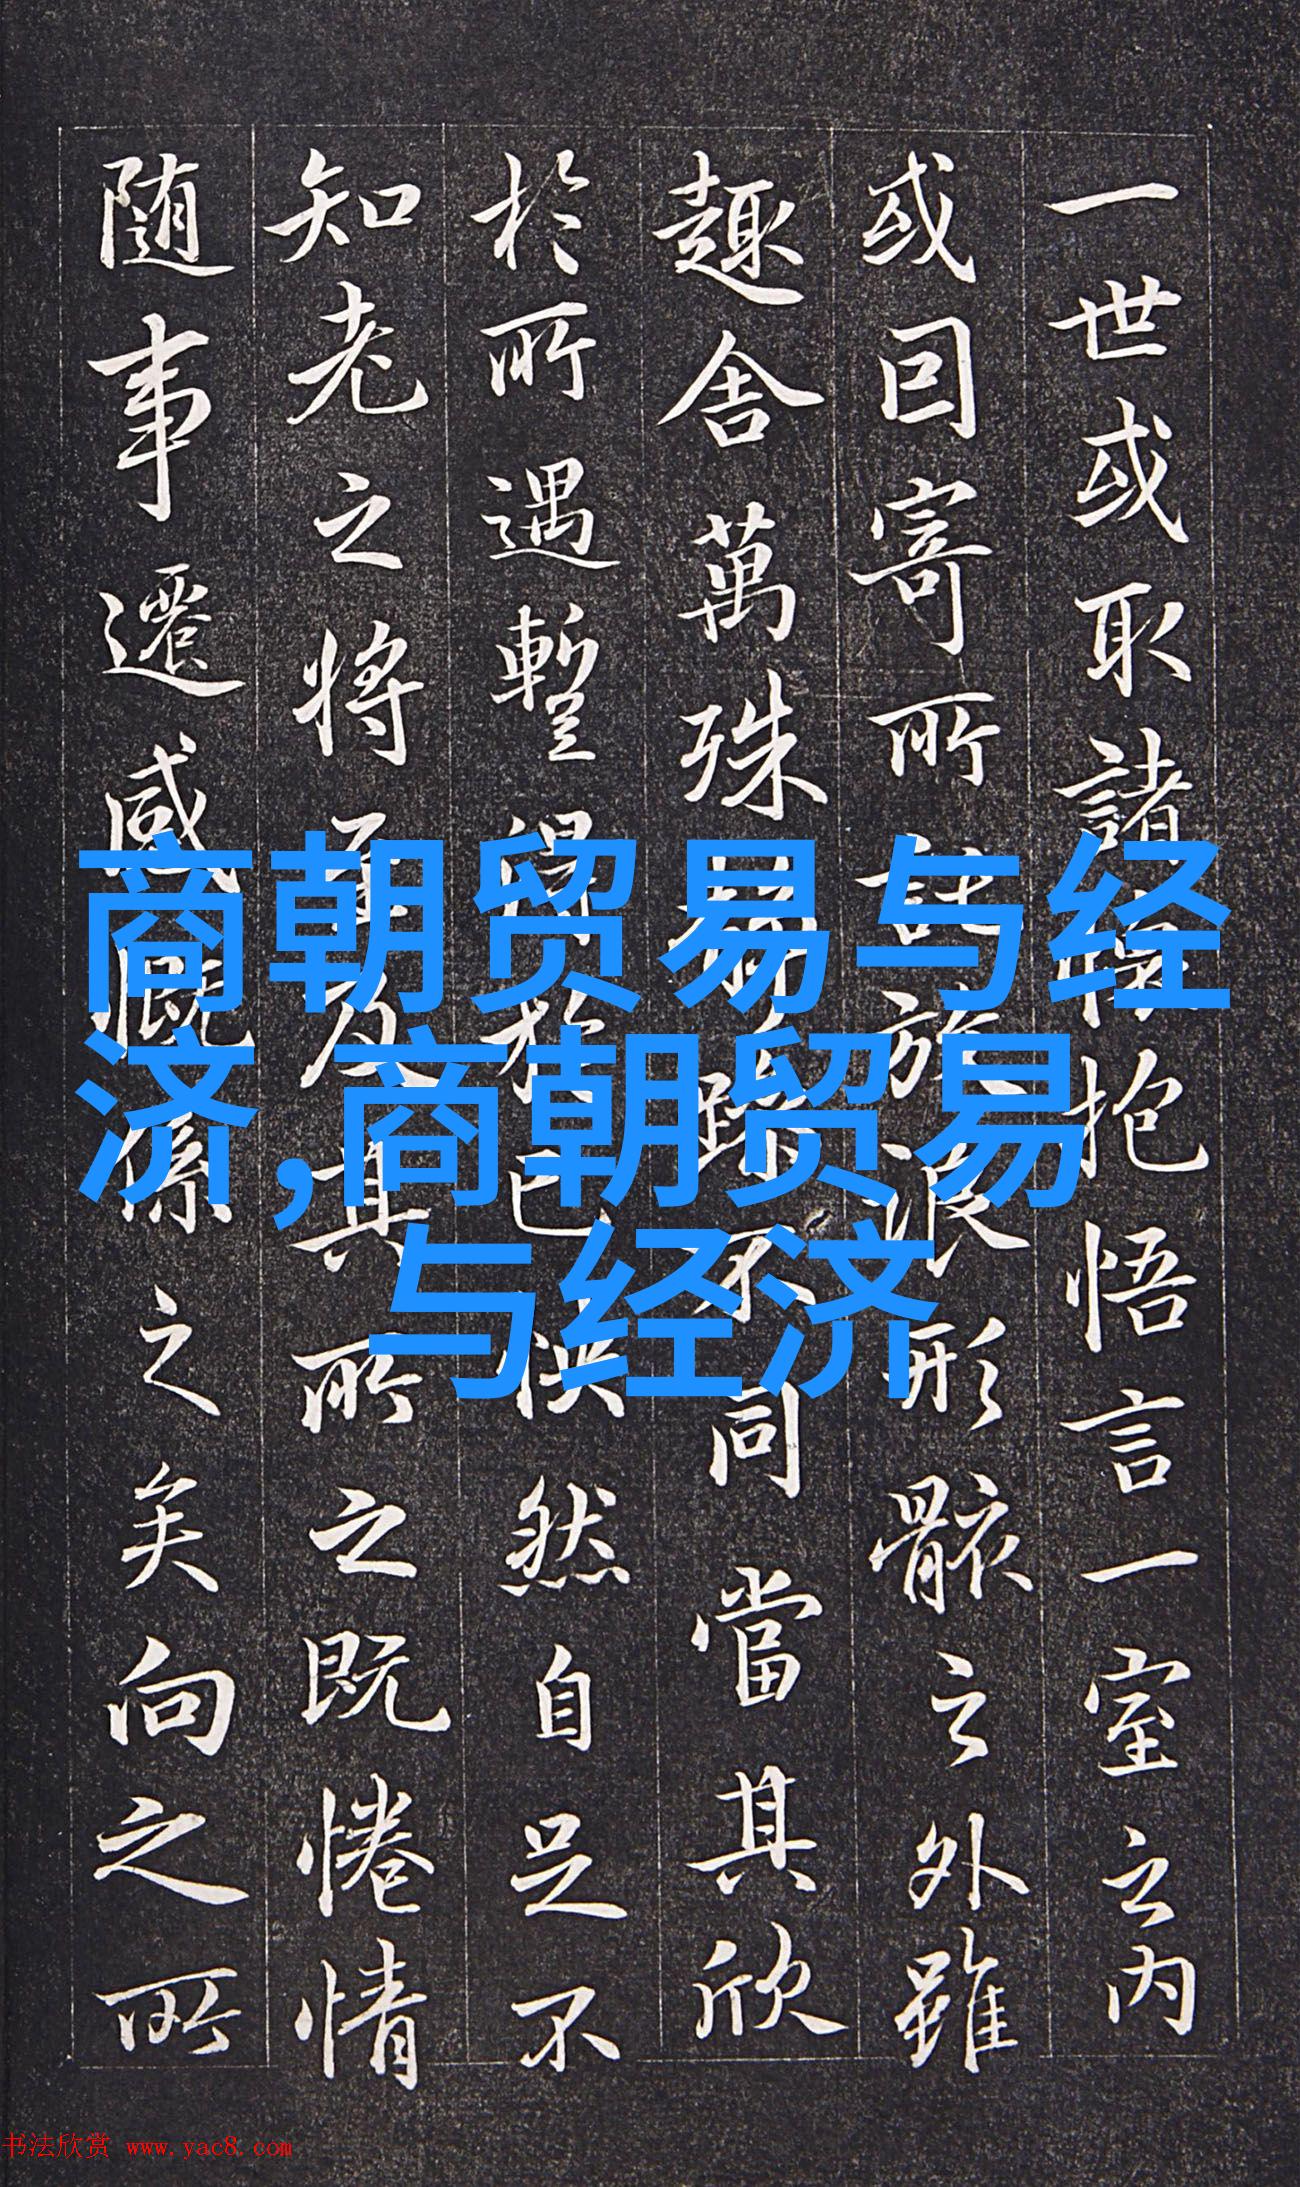 一世或取諸懷抱悟言一室之内
或因寄所託放浪形骸之外雖
趣舍萬殊静躁不同當其欣
於所遇暫得於己怏然自足不
知老之将至及其所之既惓情
随事遷感慨係之矣向之所
商朝贸易与经
济,商朝贸易
与经济
书法欣赏 www.yac8.com